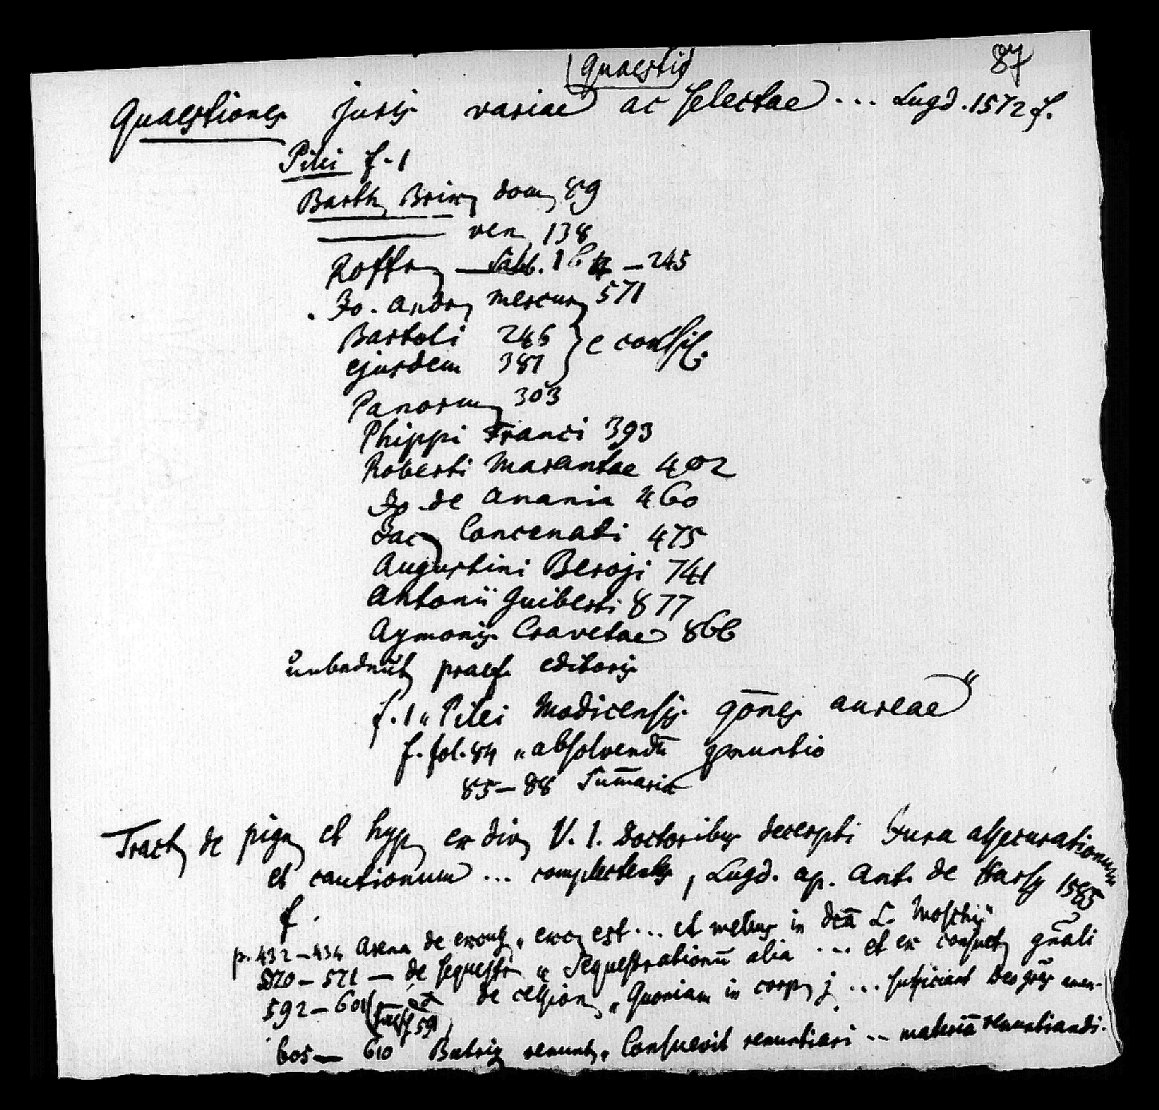 87
Quaestio
Quaestiones juris variae ac selectae ... Lugd. 1572 f.
Pilei f. 1
Barth Brix dom 89
ven 138
Roffr Sabb. 245
Jo. Andr mercur 571
Bartoli 246
ejusdem 381 } e consil.
Panorm 303
Phippi Franci 393
Roberti Marantae 402
Jo. de Anania 460
Jac Concenati 475
Augustini Beroji 741
Antonii Guiberti 877
Aymonis Cravetae 866
praef editoris
f. 1 „Pilei Modicensis qōnes aureae“
f. fol. 84 „absolvendū
85–88 Sum̄aria
Tract de pign et hyp ex div V. I. Doctoribus decerpti Jura assecurationum
et cautionum ... complectens, Lugd. ap. Ant. de Harsy 1585
f.
p. 432–434 Arena de excuss „ est ... et melius in dcā L. Moschis“
520–521 — de sequestr „Sequestrationū alia ... et ex consuet gnāli
592–601 de cession „Quoniam in corp j ... sufficiant
605–610 Butrig renunt „Consuevit renuntiari ... materiā renuntiandi.